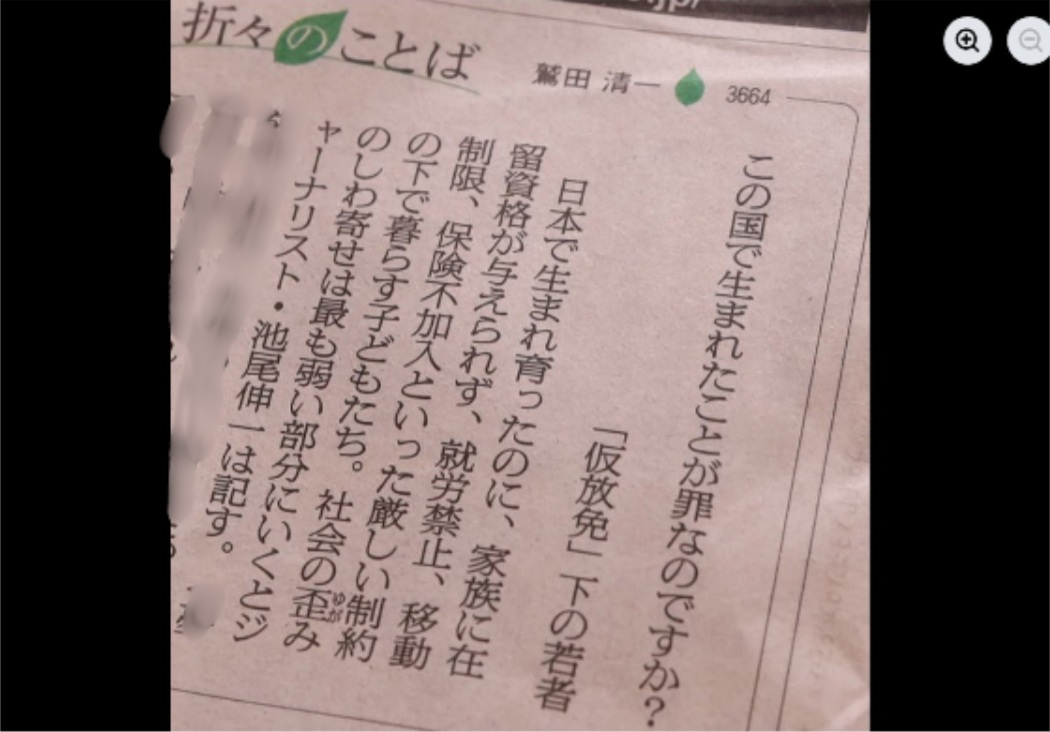 折々のことば
鷲田 清一
3664
この国で生まれたことが罪なのですか?
「仮放免」下の若者
日本で生まれ育ったのに、家族に在
留資格が与えられず、就労禁止、移動
制限、保険不加入といった厳しい制約
の下で暮らす子どもたち。社会の歪み
のしわ寄せは最も弱い部分にいくとジ
ャーナリスト・池尾伸一は記す。